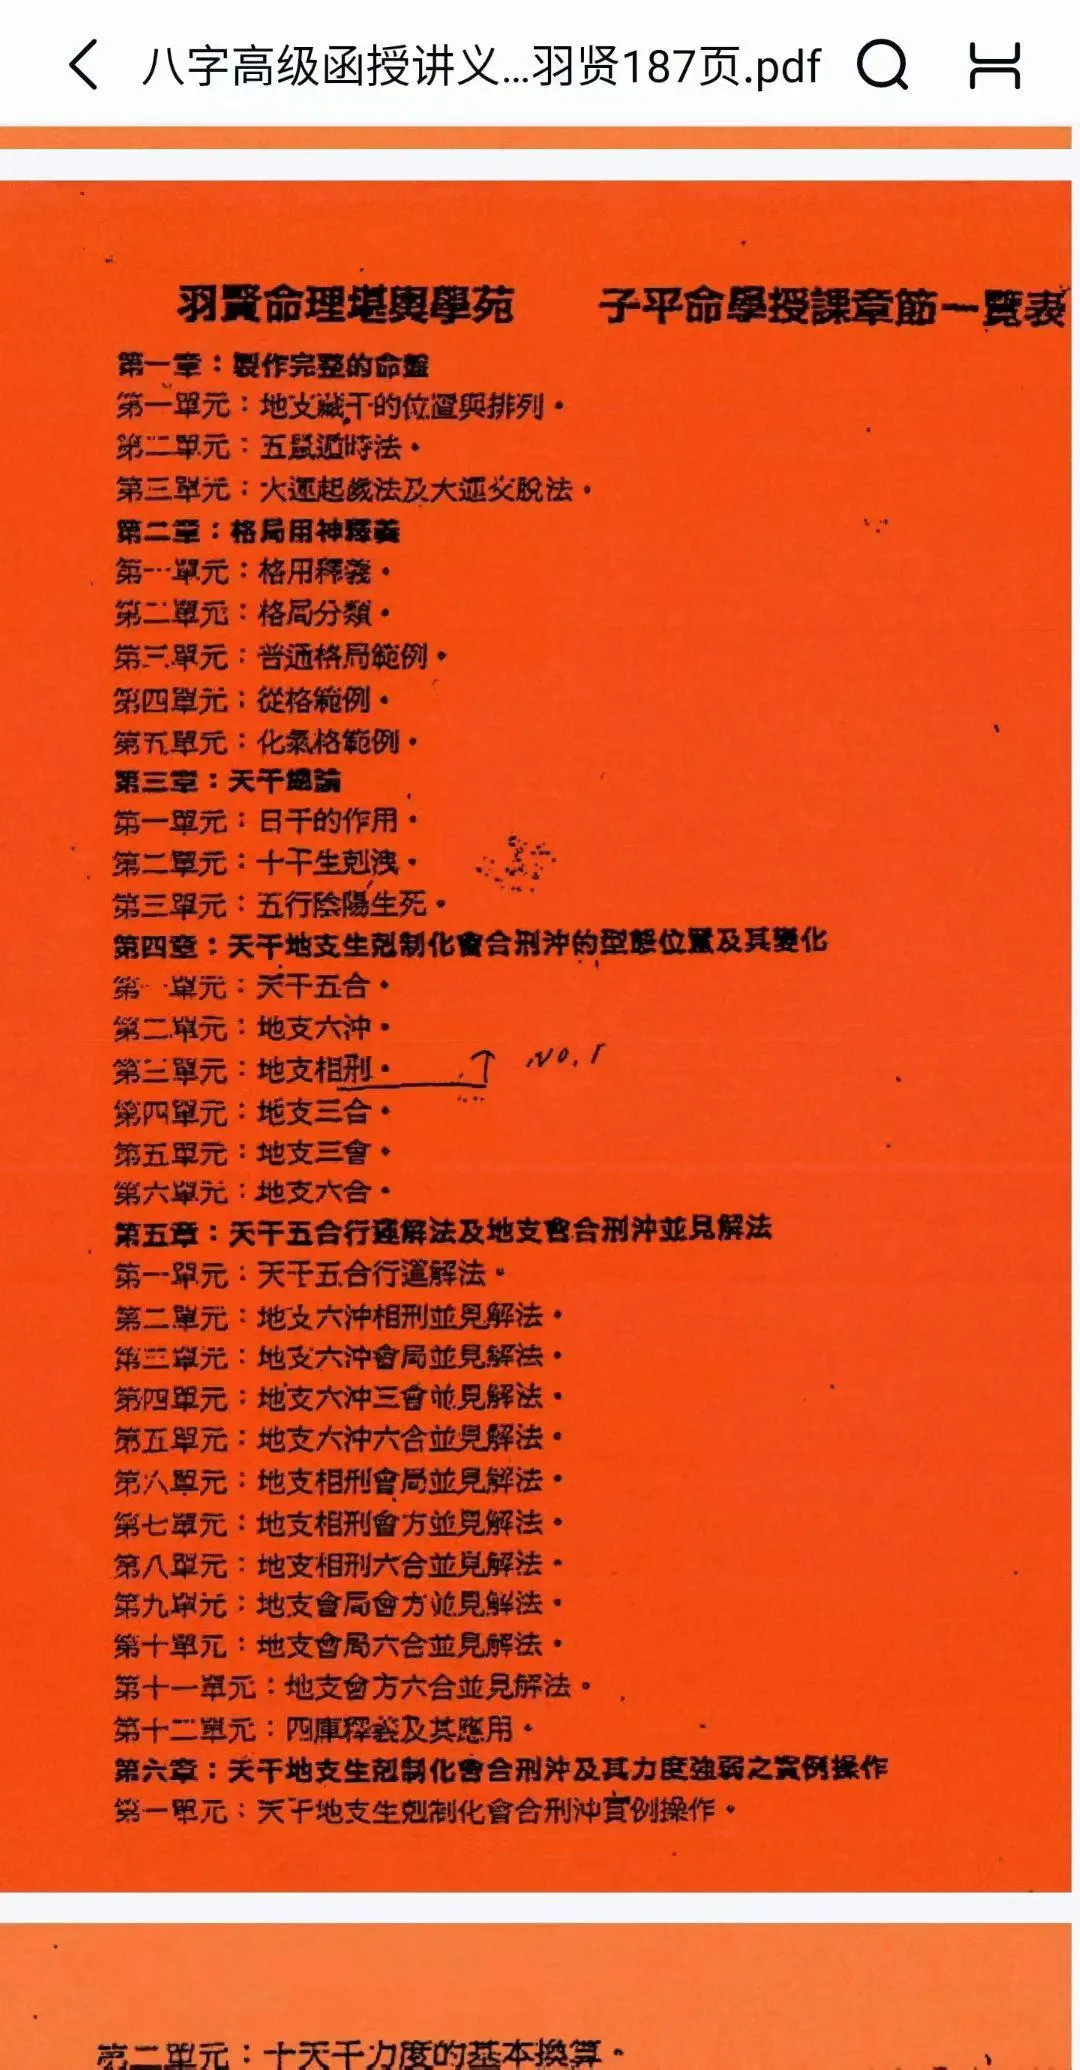 八字高级函授讲义...羽贤187页.pdf
羽賢命理堪輿學苑 子平命學授課章節一覽表
第一章：製作完整的命盤
第一單元：地支藏干的位置與排列。
第二單元：五鼠遁時法。
第三單元：大運起歲法及大運交脫法。
第二章：格局用神釋義
第一單元：格用釋義。
第二單元：格局分類。
第三單元：普通格局範例。
第四單元：從格範例。
第五單元：化氣格範例。
第三章：天干總論
第一單元：日干的作用。
第二單元：十干生剋洩。
第三單元：五行陰陽生死。
第四章：天干地支生剋制化會合刑沖的型態位置及其變化
第一單元：天干五合。
第二單元：地支六沖。
第三單元：地支相刑。 NO.1
第四單元：地支三合。
第五單元：地支三會。
第六單元：地支六合。
第五章：天干五合行運解法及地支會合刑沖並見解法
第一單元：天干五合行運解法。
第二單元：地支六沖相刑並見解法。
第三單元：地支六沖會局並見解法。
第四單元：地支六沖三會並見解法。
第五單元：地支六沖六合並見解法。
第六單元：地支相刑會局並見解法。
第七單元：地支相刑會方並見解法。
第八單元：地支相刑六合並見解法。
第九單元：地支會局會方並見解法。
第十單元：地支會局六合並見解法。
第十一單元：地支會方六合並見解法。
第十二單元：四庫釋義及其應用。
第六章：天干地支生剋制化會合刑沖及其力度強弱之實例操作
第一單元：天干地支生剋制化會合刑沖實例操作。
第二單元：十天干力度的基本換算。